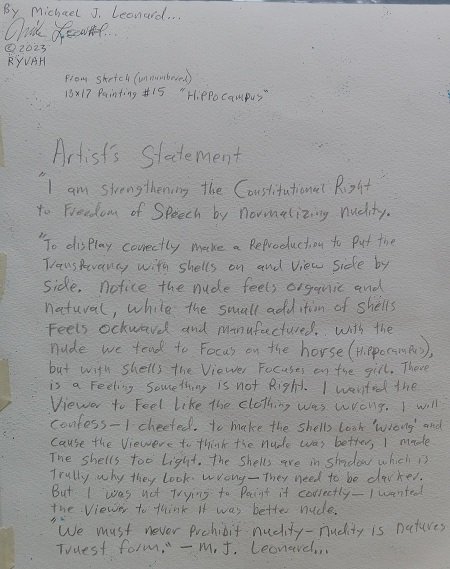 By Michael J. Leonard...
Mike Leonard...
© 2023
RYVAH
From Sketch (unnumbered)
13x17 Painting #15 "Hippocampus"
Artist's Statement
"I am strengthening the Constitutional Right
to Freedom of Speech by normalizing nudity.
"To display correctly make a Reproduction to Put the
Transparancy with shells on and view side by
side. Notice the nude feels organic and
natural, while the small addition of shells
feels ockward and manufactured. With the
nude we tend to focus on the horse (Hippocampus),
but with shells the viewer focuses on the girl. There
is a feeling something is not right. I wanted the
viewer to feel like the clothing was wrong. I will
confess - I cheeted. To make the shells look "wrong" and
cause the viewere to think the nude was better, I made
the shells too light. The shells are in shadow which is
trully why they look wrong - they need to be darker.
But I was not trying to paint it correctly - I wanted
the viewer to think it was better nude.
"We must never prohibit nudity - nudity is natures
truest form." - M. J. Leonard...